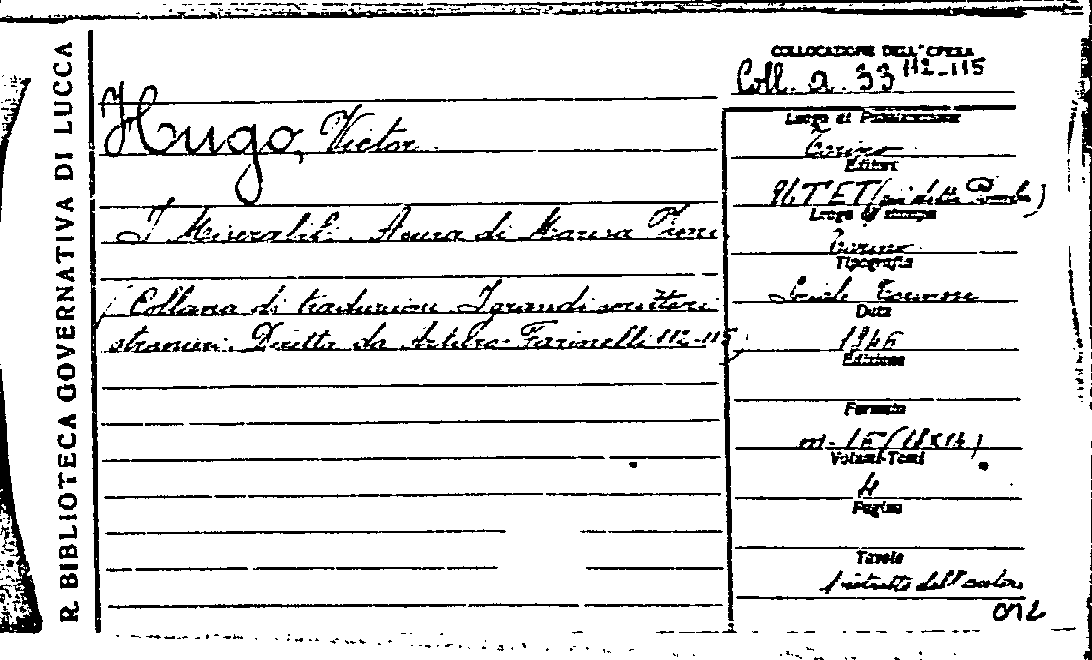 R. BIBLIOTECA GOVERNATIVA DI LUCCA
Hugo, Victor
I Miserabili. A cura di Marisa
(Collana di traduzioni I grandi scrittori
stranieri. Diretta da Arturo Farinelli 112-115)
COLLOCAZIONE DELL'OPERA
Coll. a. 33 112-115
Luogo di Pubblicazione
Torino
Editori
UTET (già ditta Pomba)
Luogo di stampa
Torino
Tipografia
Sociale Torinese
Data
1946
Edizione
Formato
m. 16 (18x12)
Volumi-Tomi
4
Pagine
Tavole
1 ritratto dell'autore